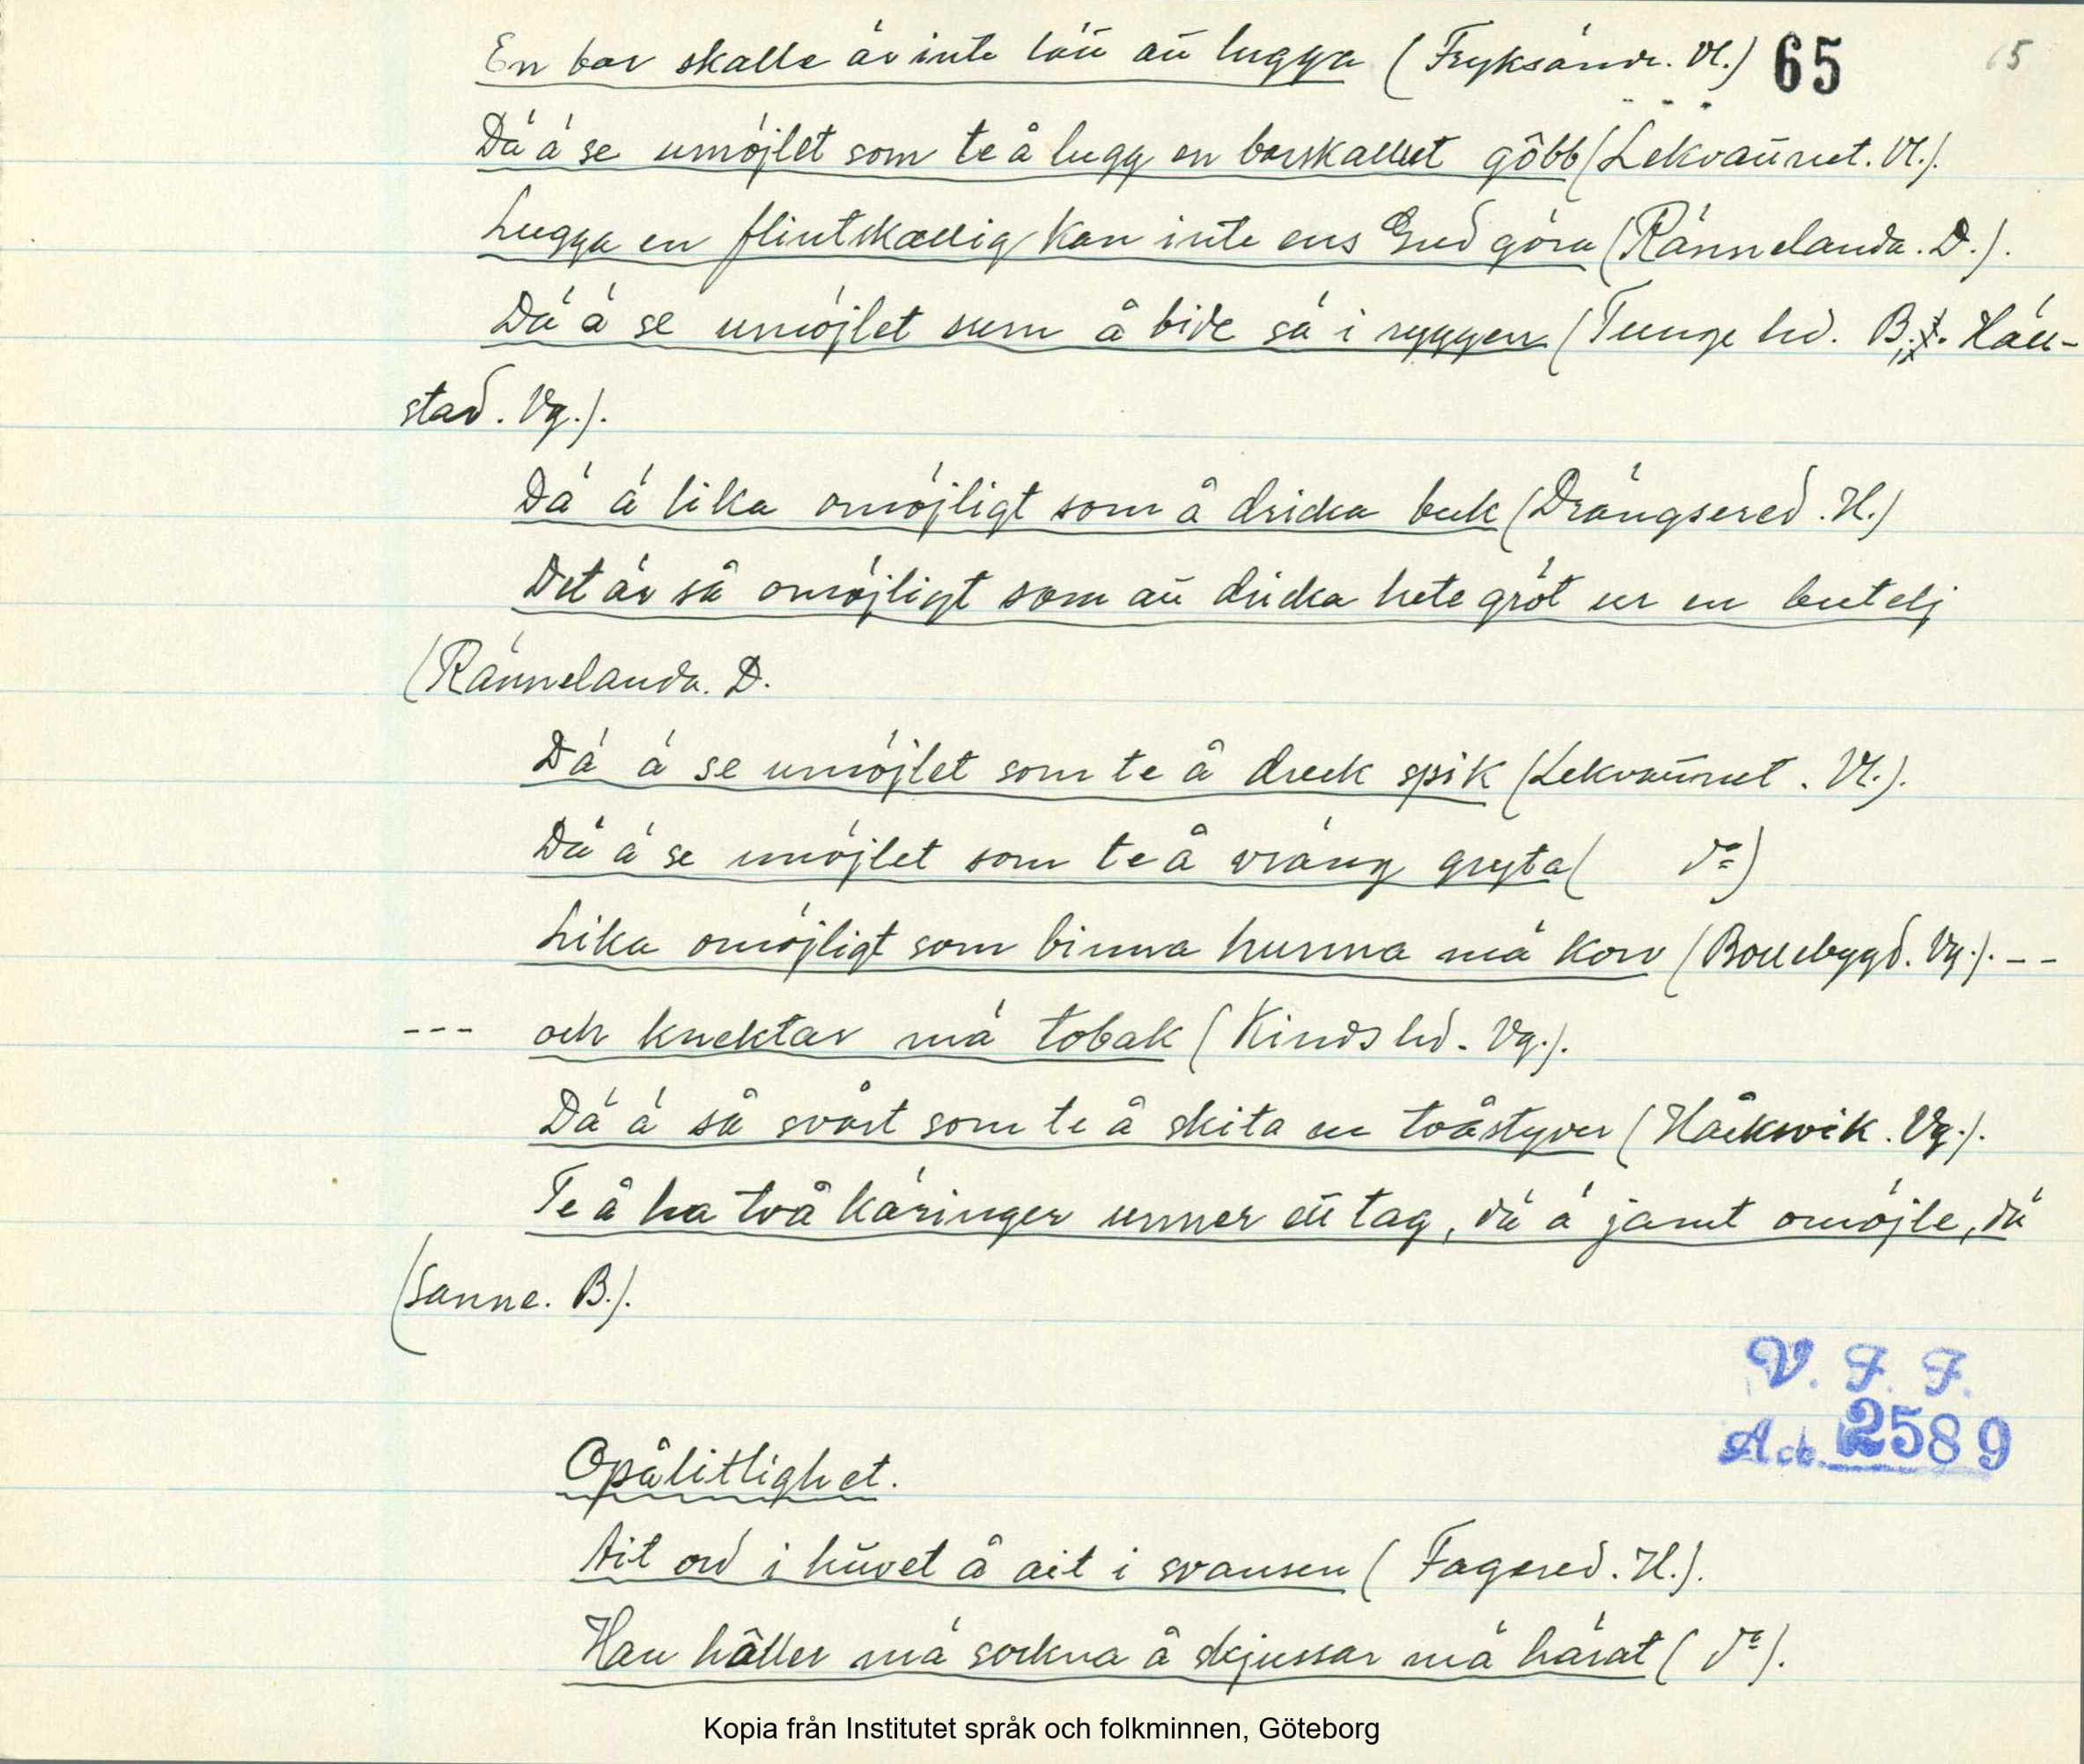 En bar skalle är inte lätt att lugga (Fryksände. Vl.) 65 65
Dä ä se umöjlet som te å lugg en barskallet gôbb (Lekvattnet. Vl.).
Lugga en flintskallig kan inte ens Gud göra (Rännelanda. D.).
Dä ä se umöjlet sum å bide sä i ryggen (Tunge hd. B. Häll-
stad. Vg.).
Dä ä lika omöjligt som å dricka buk (Drängsered. H.)
Det är så omöjligt som att dricka hete gröt ur en butelj
(Rännelanda. D.
Dä ä se umöjlet som te å dreck spik (Lekvattnet. Vl.).
Dä ä se umöjlet som te å vräng gryta ( do)
Lika omöjligt som binna hunna mä korv (Bollebygd. Vg.). - -
- - - och knektar mä tobak (Kinds hd. Vg.).
Dä ä så svårt som te å skita en tvåstyver (Håcksvik. Vg.).
Te å ha två käringer unner ett tag, dä ä jamt omöjle, dä
(Sanne. B.).
V. F. F.
Ack. 2589
Opålitlighet.
Ait ord i huvet å ait i svansen (Fagered. H.).
Han håller mä sockna å skjussar mä härat (do).
Kopia från Institutet språk och folkminnen, Göteborg